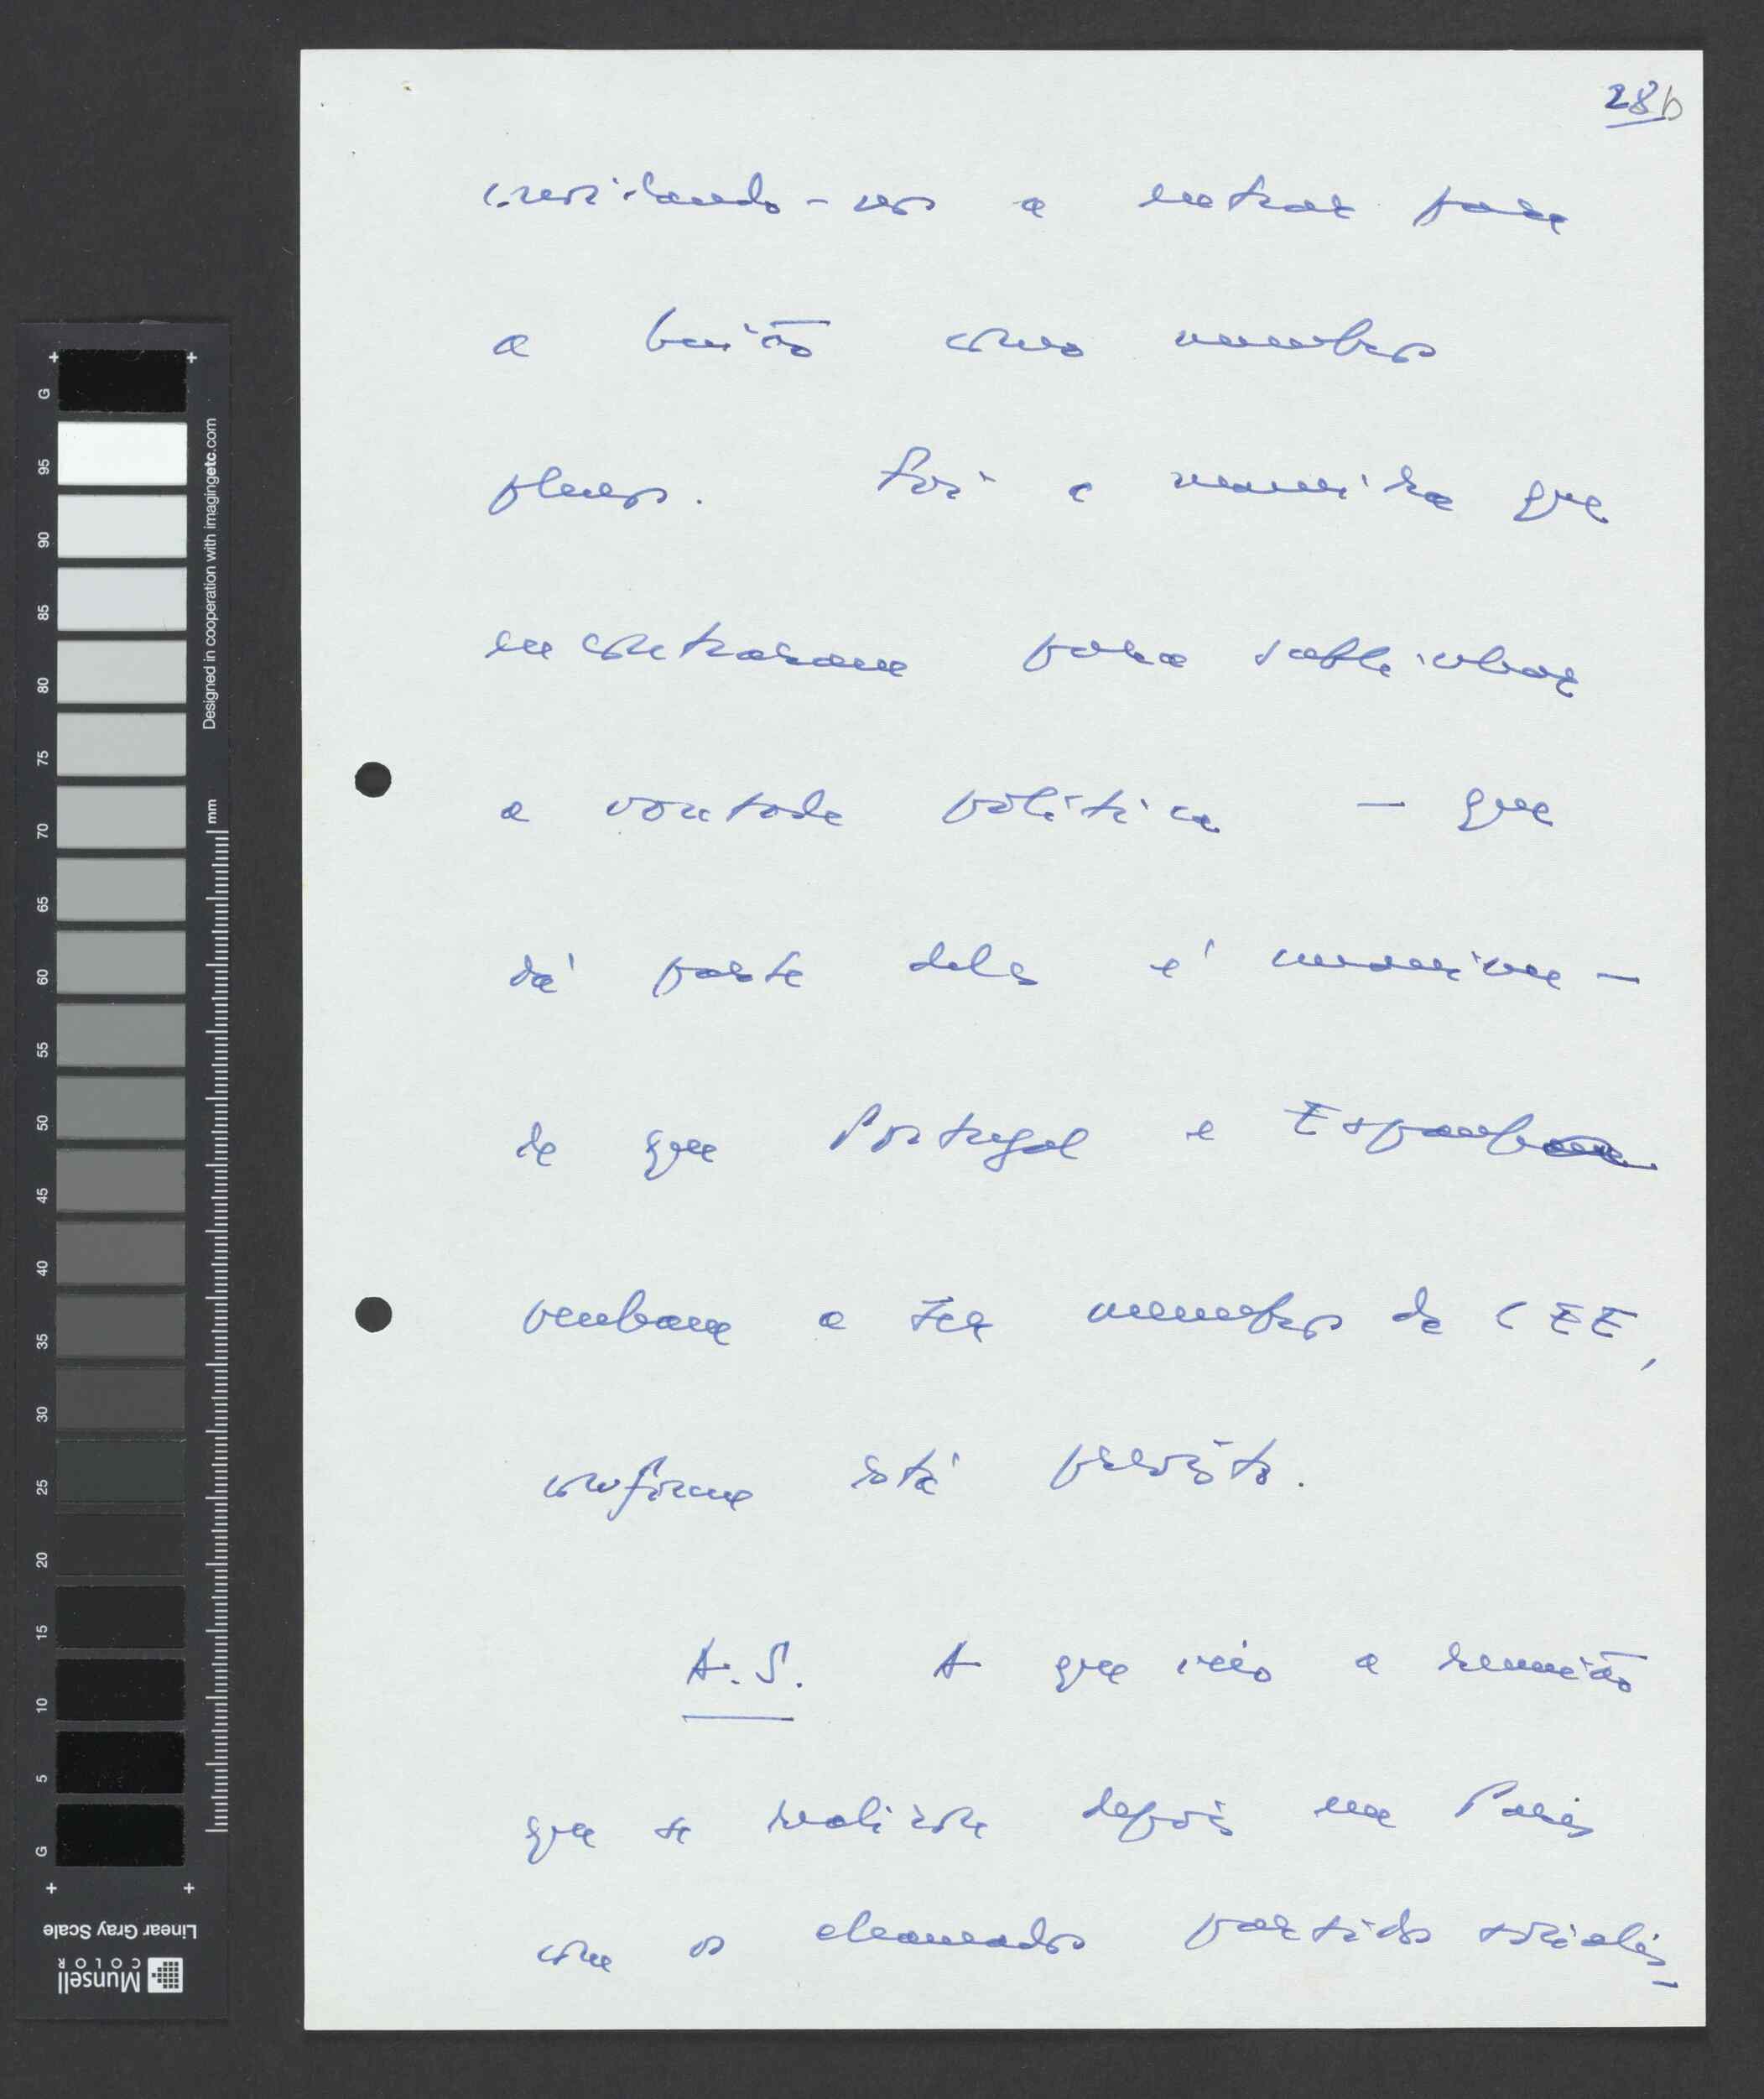 28b
convidando-nos a entrar para
a União como membros
plenos. Foi a maneira que
encontraram para sublinhar
a vontade política — que
da parte deles é unânime —
de que Portugal e Espanha
venham a ser membros da CEE,
conforme está previsto.
A.S. A que veio a reunião
que se realizou depois em Paris
com os chamados partidos socialis-
G
95
90
85
80
75
70
65
60
55
50
45
40
35
30
25
20
15
10
5
G
Designed in cooperation with imagingetc.com
mm
Linear Gray Scale
Munsell
COLOR